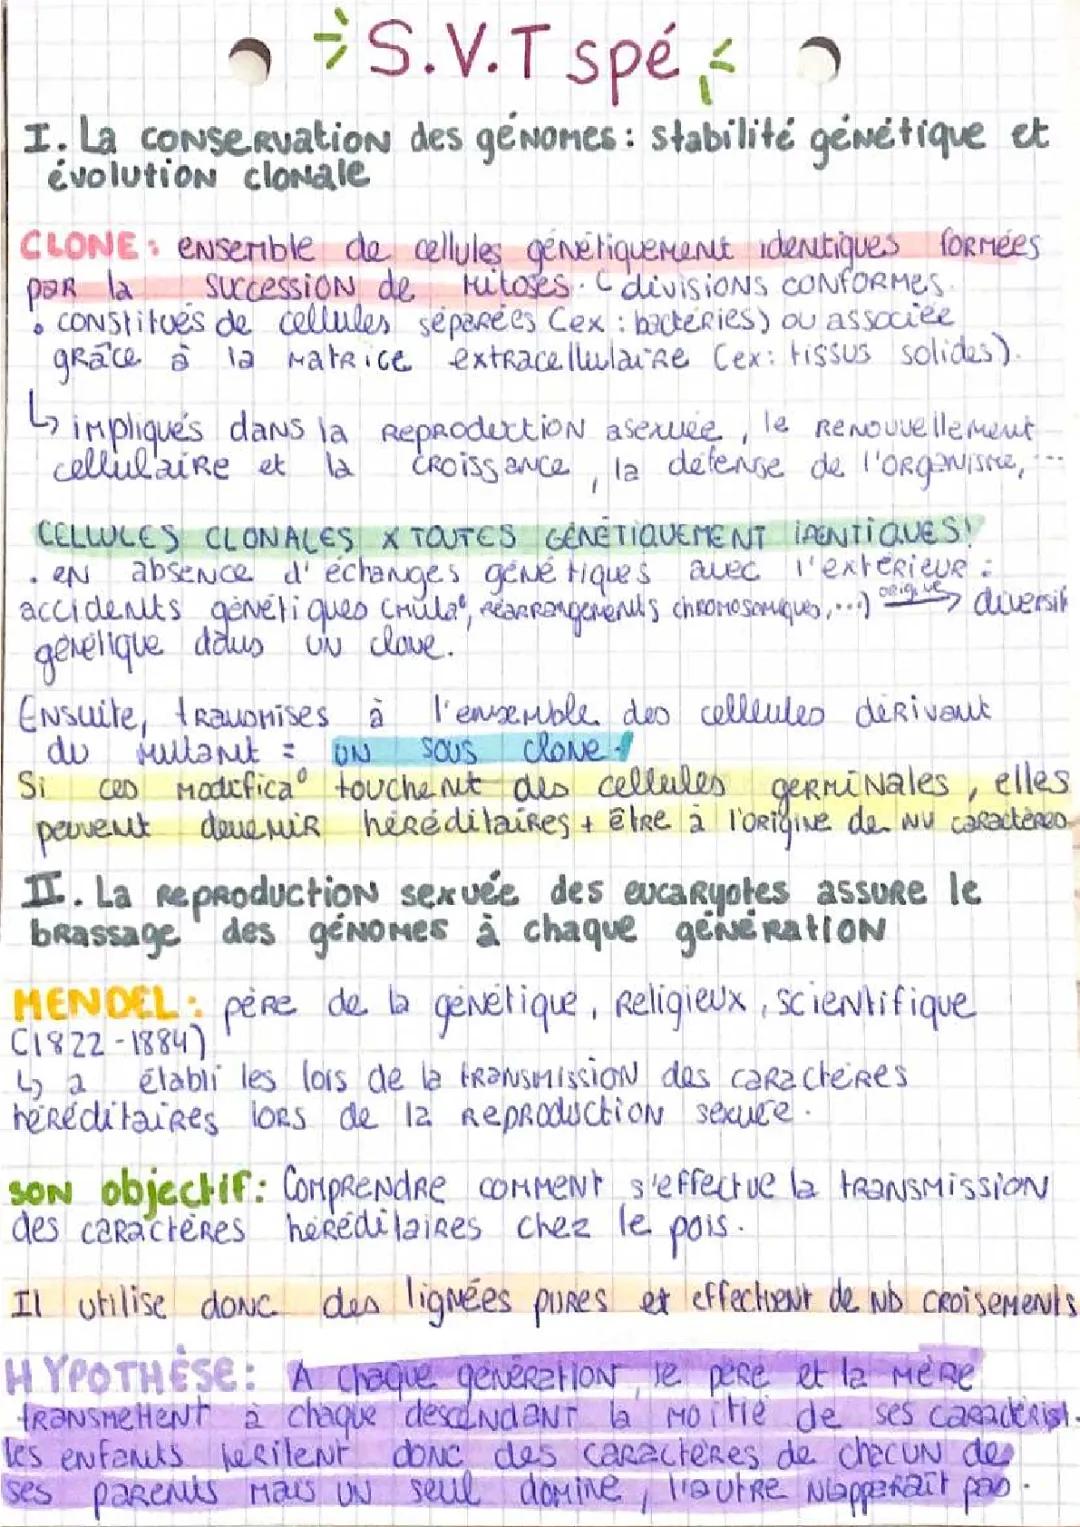 S.V.T spé
I. La conservation des génomes : stabilité génétique et
évolution clonale
CLONE : ensemble de cellules génétiquement identiques formées
par la succession de mitoses. ( divisions conformes.
• constitués de cellules séparées (ex : bactéries) ou associée
grâce à la matrice extracellulaire (ex: tissus solides).
↳ impliqués dans la reproduction asexuée, le renouvellement
cellulaire et la croissance, la défense de l'organisme, ...
CELLULES CLONALES X TOUTES GÉNÉTIQUEMENT IDENTIQUES!
• en absence d'échanges génétiques avec l'extérieur :
accidents génétiques (muta°, réarrangements chromosomiques,...) origine → diversit
génétique dans un clone.
Ensuite, transmises à l'ensemble des cellules dérivant
du mutant = un sous clone.
Si ces modifica° touchent des cellules germinales, elles
peuvent devenir héréditaires + être à l'origine de nv caractères
II. La reproduction sexuée des eucaryotes assure le
brassage des génomes à chaque génération
MENDEL : père de la génétique, religieux, scientifique
(1822-1884)
↳ a établi les lois de la transmission des caractères
héréditaires lors de la reproduction sexuée.
son objectif: Comprendre comment s'effectue la transmission
des caractères héréditaires chez le pois.
Il utilise donc des lignées pures et effectuent de nb croisements
HYPOTHÈSE: A chaque génération, le père et la mère
transmettent à chaque descendant la moitié de ses caractérist.
les enfants héritent donc des caractères de chacun de
ses parents mais un seul domine, l'autre n'apparaît pas.